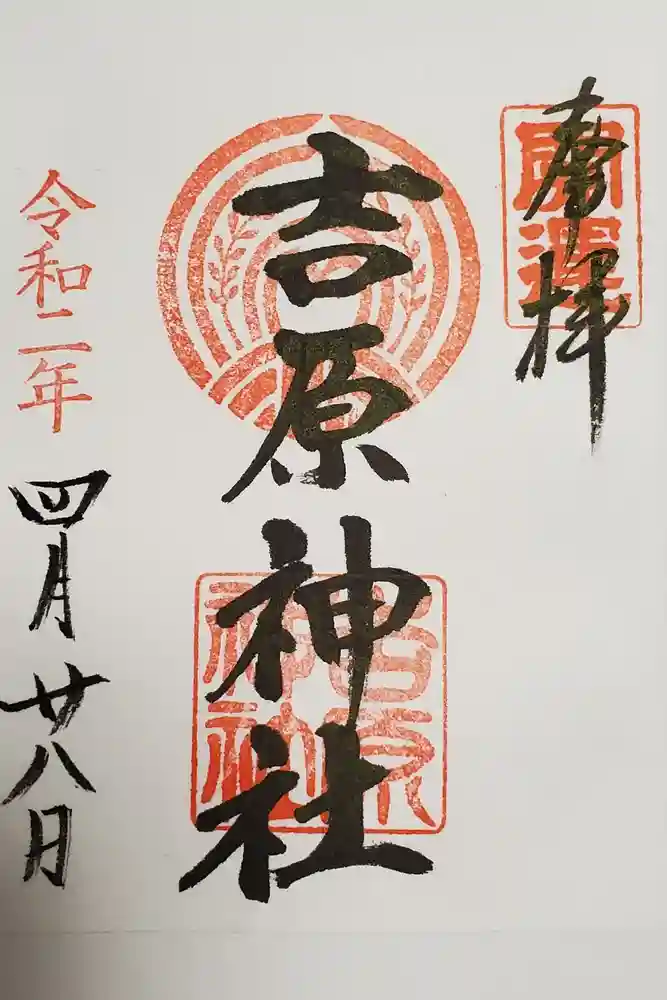 奉拝
吉原神社
吉原
神社
令和二年四月廿八日